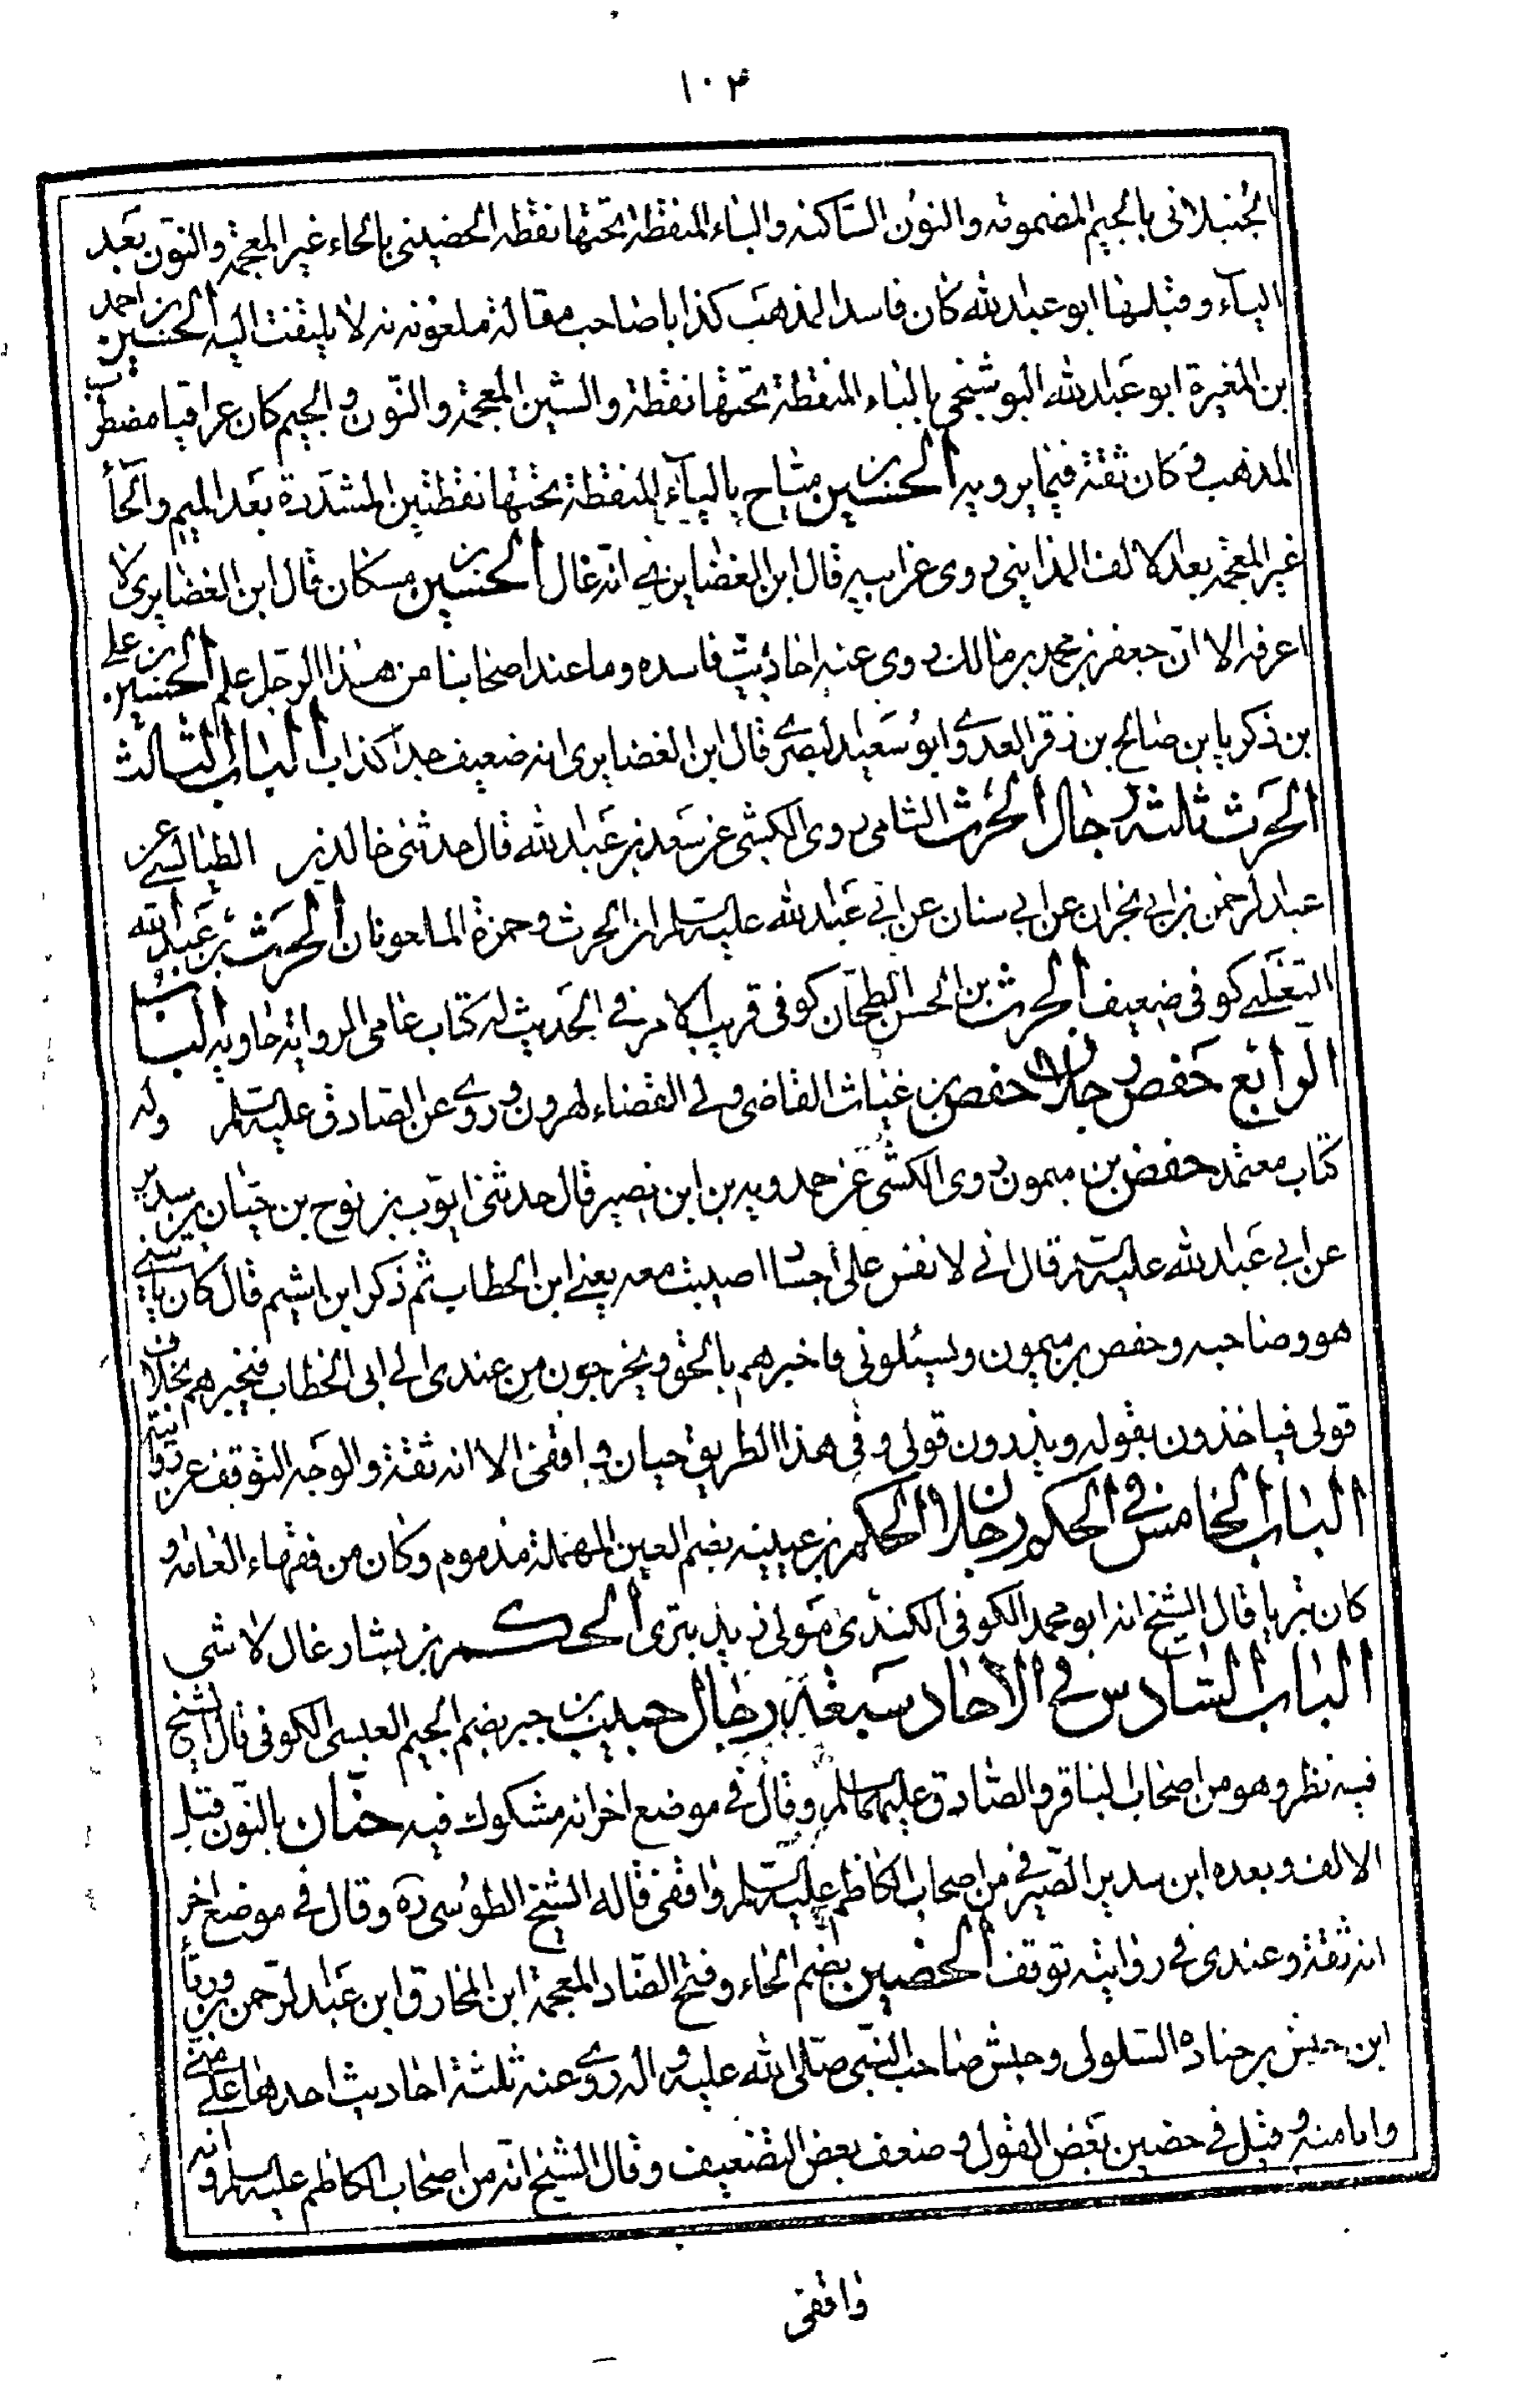 ١٠٣
الجنبلانى بالجيم المضمومة والنون الساكنة والباء المنقطة تحتها نقطة الحضينى بالحاء غير المعجمة والنون بعد
الياء وقبلها ابو عبد الله كان فاسد المذهب كذابا صاحب مقالة ملعونة لا يلتفت اليه الحسين بن احمد
بن المغيرة ابو عبد الله البوشنجى بالباء المنقطة تحتها نقطة والشين المعجمة والنون والجيم كان عراقيا مضطرب
المذهب وكان ثقة فيما يرويه الحسين بن مياح بالياء المنقطة تحتها نقطتين المشددة بعد الميم والحاء
غير المعجمة بعد الالف المداينى روى عن ابيه قال ابن الغضايرى انه غال الحسين بن مسكان قال ابن الغضايرى لا
اعرفه الا ان جعفر بن محمد بن مالك روى عنه احاديث فاسدة وما عند اصحابنا من هذا الرجل علم الحسين بن على
بن زكريا بن صالح بن زفر العدوى ابو سعيد البصرى قال ابن الغضايرى انه ضعيف جدا كذاب الباب الثالث
الحرث ثلثة رجال الحرث الشامى روى الكشى عن سعد بن عبد الله قال حدثنى خالد بن الطيالسى عن
عبد الرحمن بن ابى نجران عن ابى سنان عن ابى عبد الله عليه السلم ان الحرث وحمزة الملعونان الحرث بن عبد الله
التغلبى كوفى ضعيف الحرث بن الحسن الطحان كوفى قريب الامر فى الحديث له كتاب عامى الرواية حاويه الباب
الرابع حفص رجلان حفص بن غياث القاضى ولى القضاء لهرون وروى عن الصادق عليه السلم وله
كتاب معتمد حفص بن ميمون روى الكشى عن حمدويه بن ابن نصير قال حدثنى ايوب بن نوح بن حنان بن سدير
عن ابى عبد الله عليه السلم قال انى لا نفس على اجساد اصيبت معه يعنى ابن الخطاب ثم ذكر ابن اشيم قال كان ياتينى
هو وصاحبه وحفص بن ميمون ويسئلونى فاخبرهم بالحق ويخرجون من عندى الى ابى الخطاب فيخبرهم بخلاف
قولى فياخذون بقوله ويذرون قولى وفى هذا الطريق حيان واقفى الا انه ثقة والوجه التوقف عن روايته
الباب الخامس فى الحكم رجلان الحكم بن عيينه بضم العين المهملة مذموم وكان من فقهاء العامة و
كان بتريا قال الشيخ انه ابو محمد الكوفى الكندى مولى زيدى بترى الحكم بن بشار غال لا شى
الباب السادس فى الاحاد سبعة رجال حبيب بن جبر بضم الجيم العبسى الكوفى قال الشيخ
فيه نظر وهو من اصحاب الباقر والصادق عليهما السلم وقال فى موضع اخر انه مشكوك فيه حنان بالنون قبل
الالف وبعده ابن سدير الصيرفى من اصحاب الكاظم عليه السلم واقفى قاله الشيخ الطوسى ره وقال فى موضع اخر
انه ثقة وعندى فى روايته توقف الحضين بضم الحاء وفتح الضاد المعجمة ابن المخارق ابن عبد الرحمن بن ورقاء
ابن حبش بن جنادة السلولى وحبش صاحب النبى صلى الله عليه واله وروى عنه ثلثة احاديث احدها على منى
وانا منه وقيل فى حضين بعض القول وضعف بعض التضعيف وقال الشيخ انه من اصحاب الكاظم عليه السلم وانه
واقفى